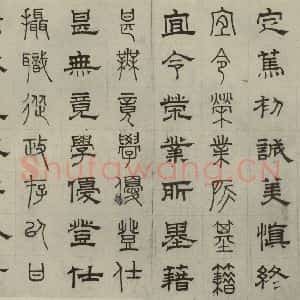 定篤初誠美慎終
宜令榮業所基籍
宜令榮業所基藉
甚無竟學優登仕
甚無竟學優登仕
攝職從政存以甘
Shufawang.CN